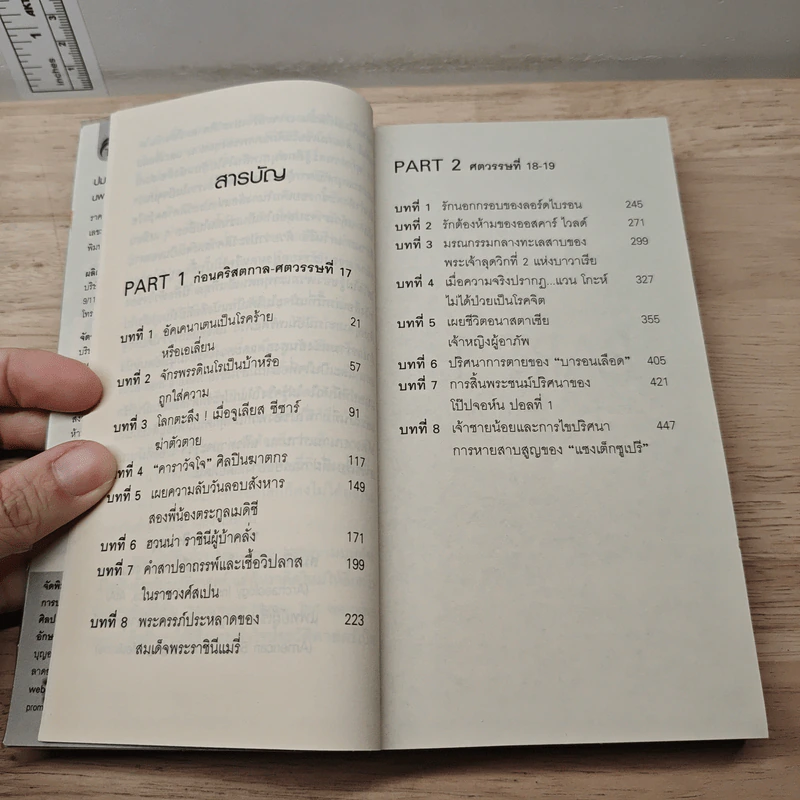 สารบัญ
PART 1 ก่อนคริสตกาล-ศตวรรษที่ 17
บทที่ 1 อัคเคนาเตนเป็นโรคร้าย 21
หรือเอเลี่ยน
บทที่ 2 จักรพรรดิเนโรเป็นบ้าหรือ 57
ถูกใส่ความ
บทที่ 3 โลกตะลึง ! เมื่อจูเลียส ซีซาร์ 91
ฆ่าตัวตาย
บทที่ 4 "คาราวัจโจ" ศิลปินฆาตกร 117
บทที่ 5 เผยความลับวันลอบสังหาร 149
สองพี่น้องตระกูลเมดิซี
บทที่ 6 ฮวนน่า ราชินีผู้บ้าคลั่ง 171
บทที่ 7 คำสาปอาถรรพ์และเชื้อวิปลาส 199
ในราชวงศ์สเปน
บทที่ 8 พระครรภ์ประหลาดของ 223
สมเด็จพระราชินีแมรี่
PART 2 ศตวรรษที่ 18-19
บทที่ 1 รักนอกกรอบของลอร์ดไบรอน 245
บทที่ 2 รักต้องห้ามของออสคาร์ ไวลด์ 271
บทที่ 3 มรณกรรมกลางทะเลสาบของ 299
พระเจ้าลุดวิกที่ 2 แห่งบาวาเรีย
บทที่ 4 เมื่อความจริงปรากฏ...แวน โกะห์ 327
ไม่ได้ป่วยเป็นโรคจิต
บทที่ 5 เผยชีวิตอนาสตาเซีย 355
เจ้าหญิงผู้อาภัพ
บทที่ 6 ปริศนาการตายของ "บารอนเลือด" 405
บทที่ 7 การสิ้นพระชนม์ปริศนาของ 421
โป๊ปจอห์น ปอลที่ 1
บทที่ 8 เจ้าชายน้อยและการไขปริศนา 447
การหายสาบสูญของ "แซงเต็กซูเปรี"
inches
1
2
3